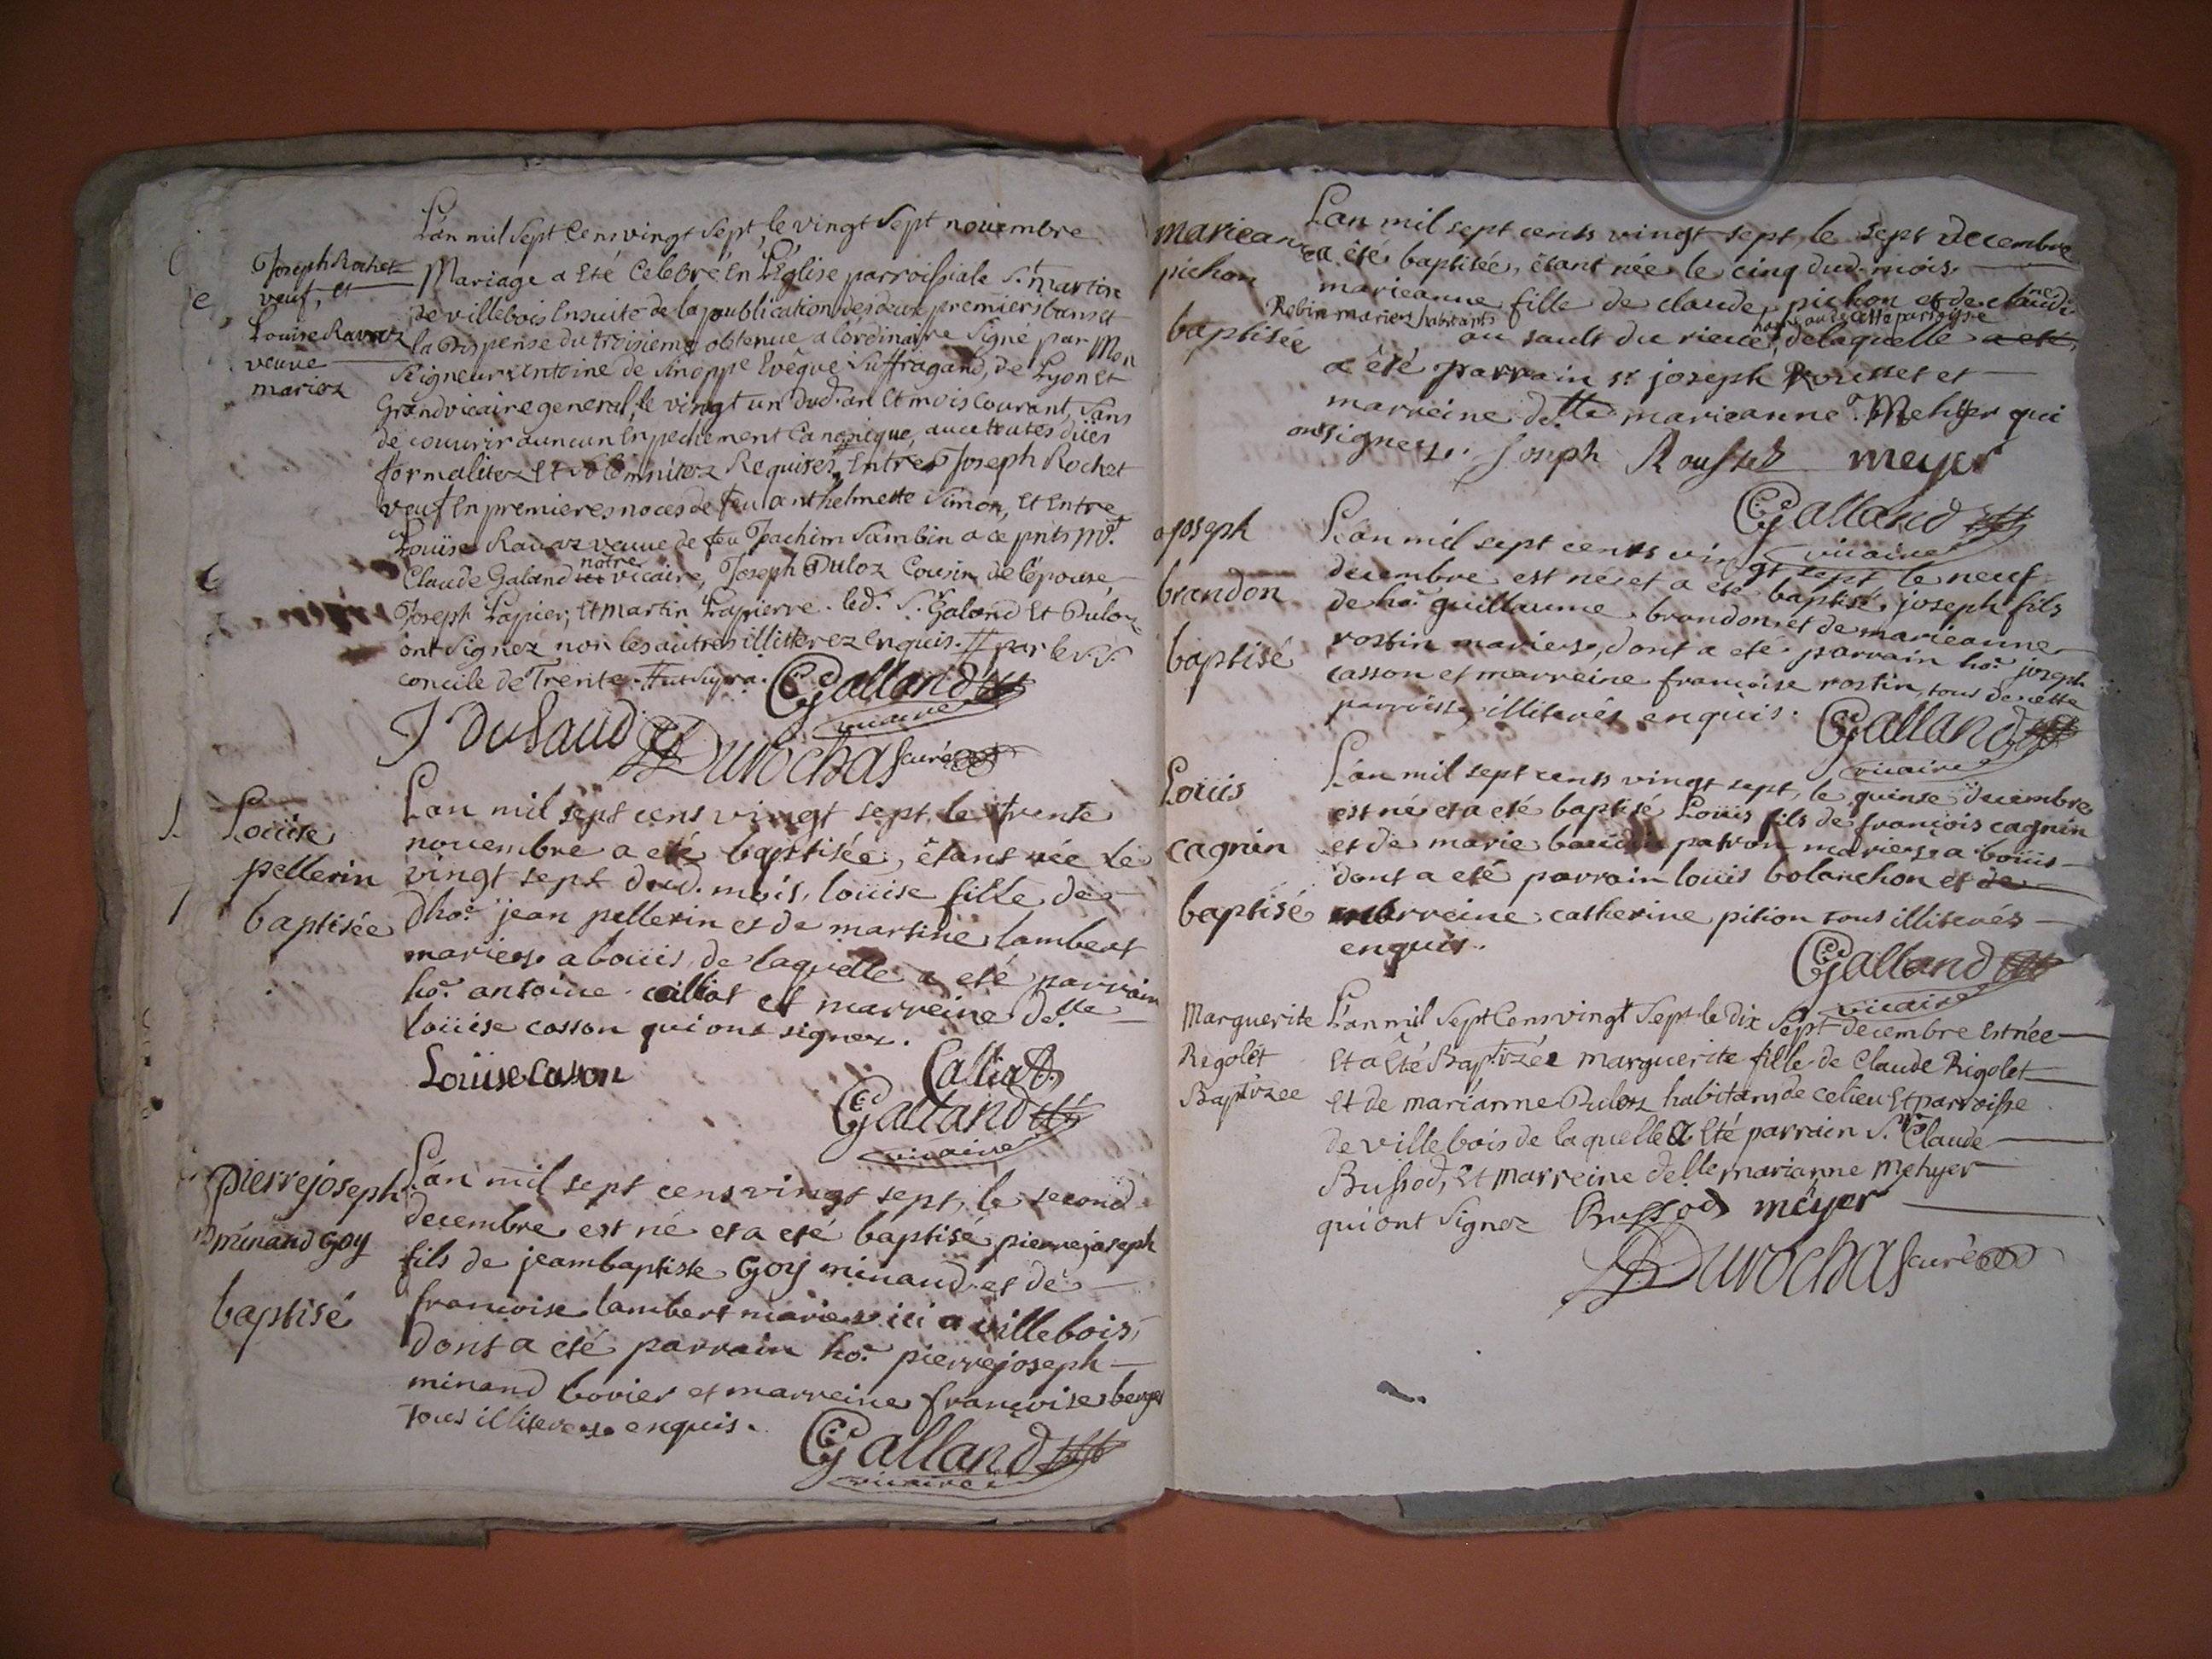 L'an mil Sept Cens vingt Sept, le vingt Sept nouembre
Joseph Rochet
veuf, et
Louise Ravaz
veuve
mariez
Mariage a Eté Celebré En L'Eglise parroissiale St. martin
de villebois Ensuite de la publication des deux premiers bans et
la Dispense du troisieme obtenue a l'ordinaire Signé par Mon
Seigneur Antoine de Sinoppe Evêque Suffragand, de Lyon et
Grand vicaire general, le vingt un dud. an et mois Courant, Sans
de couurir auncun Enpechement Canonicque, auec toutes dües
formalitez et Solemnitez Requises, Entres Joseph Rochet
veuf En premieres noces de feu anthelmette Simon, Et Entre
Louïse Ravaz veuve de feu Joachim Sambin a ce pnts
Claude Galand notre vicaire, Joseph Duloz Cousin de l'épouse,
Joseph Lapier, et martin Lapierre. led. Sr. Galand Et Duloz
ont Signez non les autres illitterez Enquis. # par le
concile de Trente.
CGalland
vicaire
J Dusaud
Durochas curé
Loüise
pellerin
baptisée
L'an mil sept cens vingt sept, le trente
nouembre a eté baptisée, étant née le
vingt sept dud. mois, loüise fille de
dho.e jean pellerin et de martine lambert
mariez. a boüis, de laquelle a eté parrain
ho.e antoine calliat et marreine de.lle
loüise cosson qui ont signez.
Loüise Casson
Calliat
CGalland
vicaire
pierre joseph
minand Goy
baptisé
L'an mil sept cens vingt sept, le second
decembre est né et a eté baptisé pierre joseph
fils de jeambaptiste Goy minaud et de
francoise lambert mariez ici a villebois,
dont a eté parrain ho.e pierre joseph
minand bovier et marreine francoise berger
tous illiterez. enquis.
CGalland
vicaire
marieanne
pichon
baptisée
L'an mil sept cents vingt sept, le sept decembre
a été baptisée, étant née le cinq dud. mois.
marieanne fille de claude pichon et de claudine
Robin mariez habitants au sault du rieux, hameau de cette parroisse delaquelle a eté,
a été parrain sr. joseph Rousset et
marreine de.lle marieanne Mehyer qui
ont signez. Joseph Rousset meyer
CGalland
vicaire
joseph
brandon
baptisé
L'an mil sept cents vingt sept le neuf
decembre est né et a été baptisé joseph fils
de ho.e guillaume brandon et de marieanne
rostin mariez, dont a eté parrain ho.e joseph
casson et marreine francoise rostin, tous de cette
parroisse, illiterés enquis.
CGalland
vicaire
Loüis
cagnin
baptisé
L'an mil sept cents vingt sept, le quinse decembre
est né et a eté baptisé Loüis fils de françois cagnin
et de marie patron mariez. a boüis
dont a eté parrain loüis bolanchon et de
marreine catherine pition tous illiterés
enquis.
CGalland
vicaire
Marguerite
Rigolet
Baptizée
L'an mil Sept Cens vingt Sept le dix Sept decembre Est née
Et a Eté Baptizée marguerite fille de Claude Rigolet
Et de marianne Duloz habitans de ce lieu Et parroisse
de villebois de laquelle a Eté parrain Sr. Claude
Bussod, Et marreine delle marianne mehyer
qui ont Signez Bussod meyer
Durochas curé